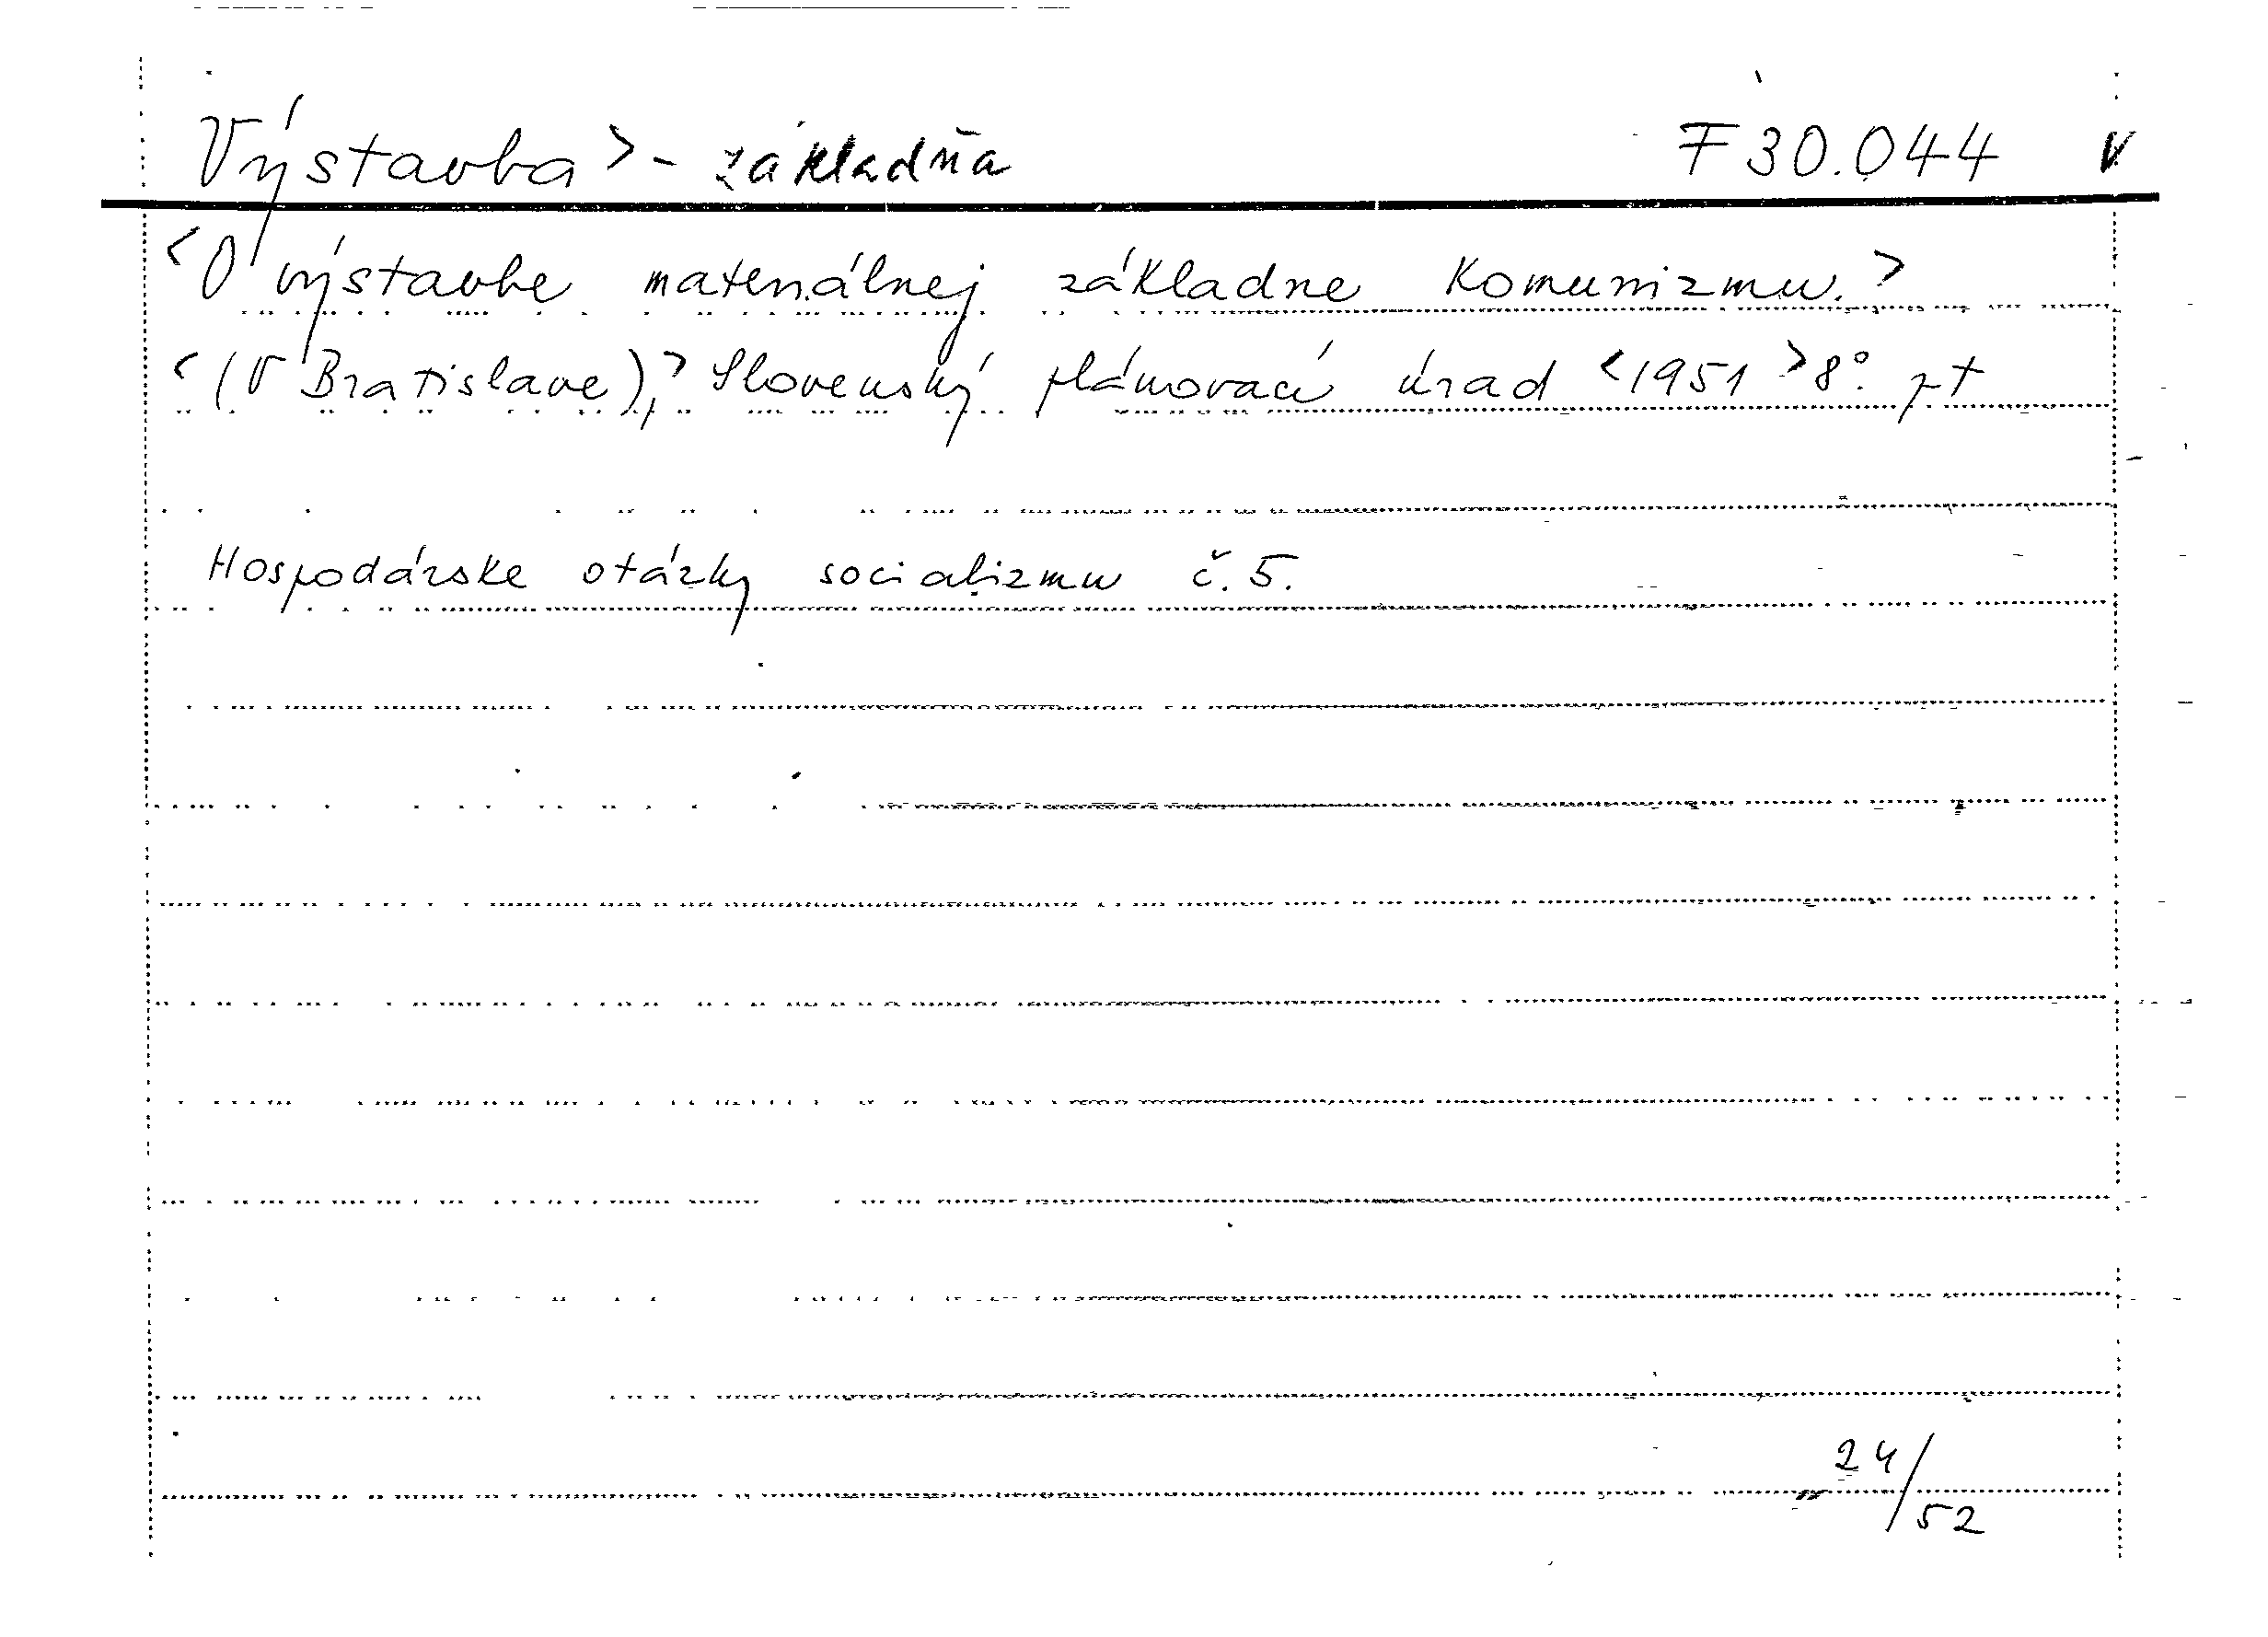 Výstavba > - základňa F 30.044 V
<O výstavbe materiálnej základne komunizmu.>
<(V Bratislave),> Slovenský plánovací úrad <1951> 8°.
Hospodárske otázky socializmu č. 5.
24/52